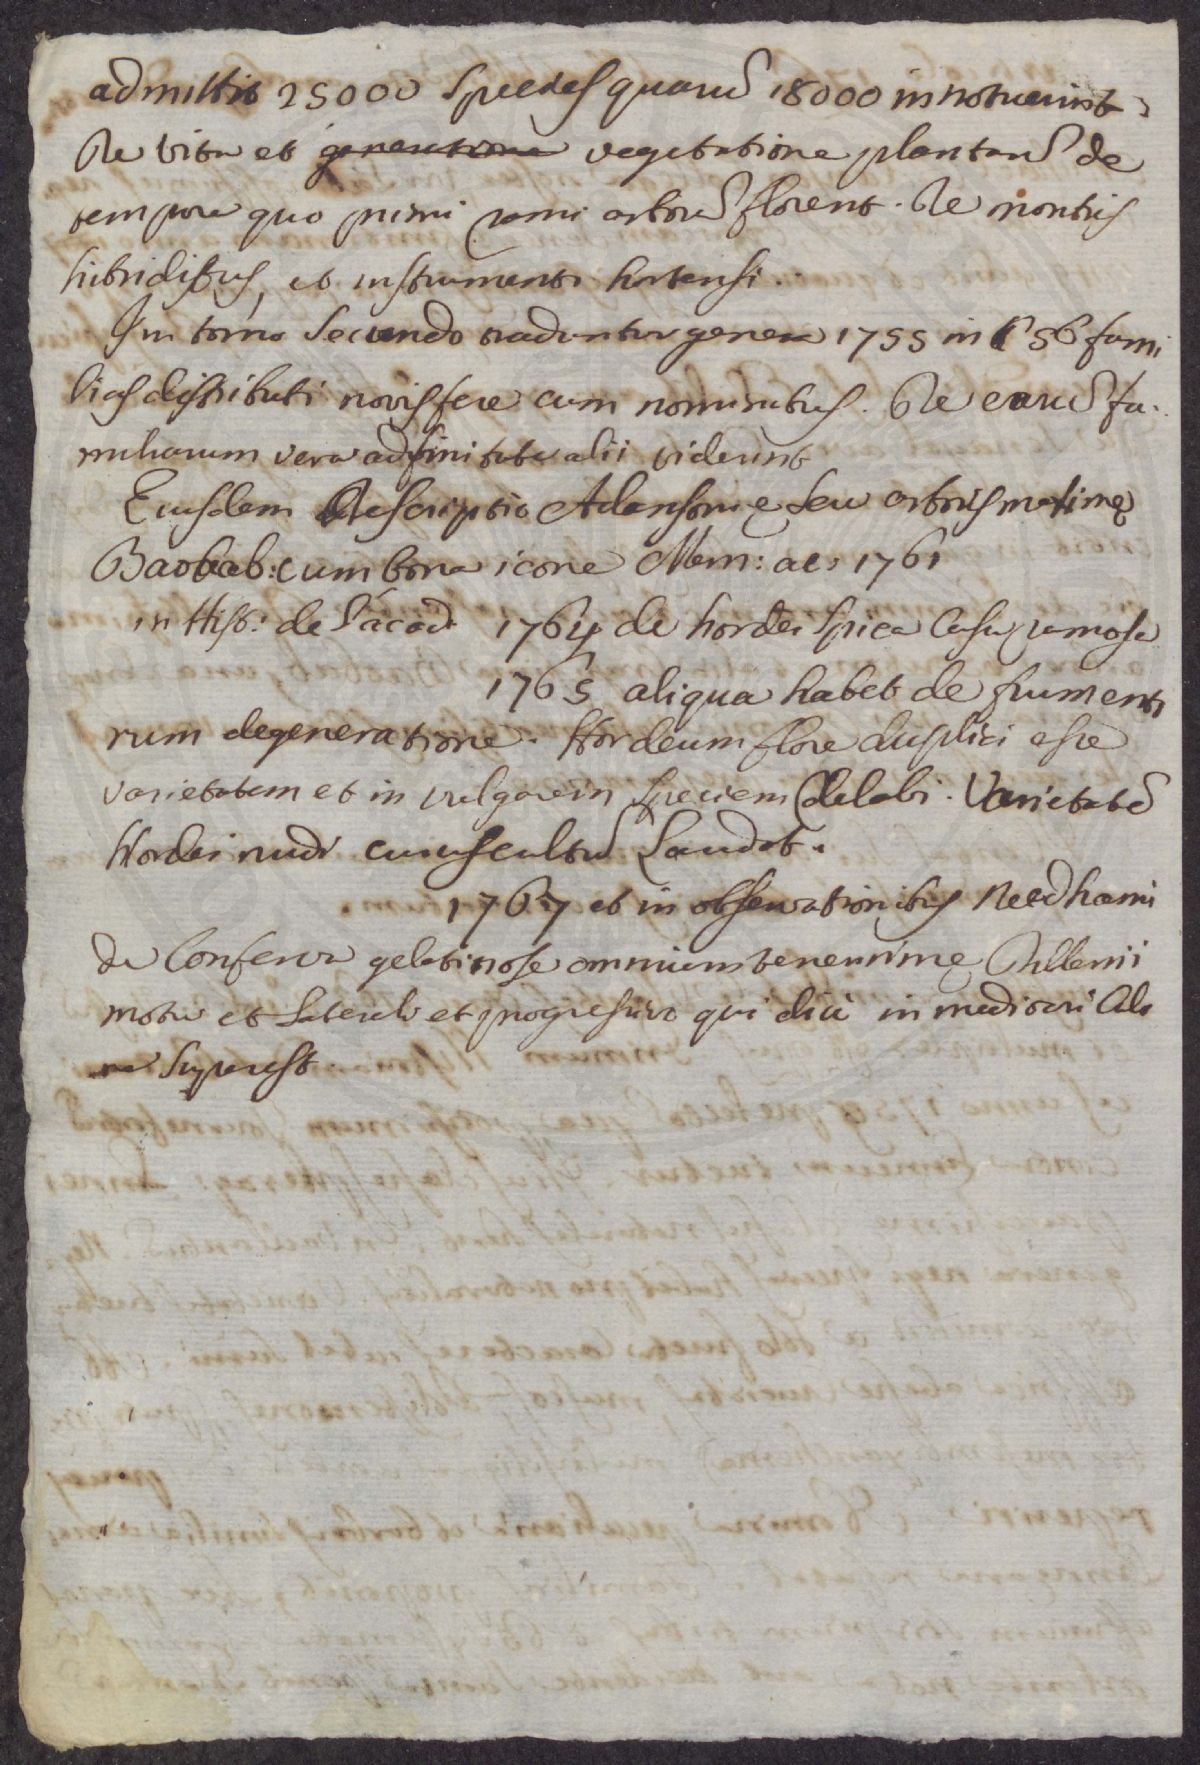 admittit 25000 Species quarū 18000 innotuerint.
De vita et generatione vegetatione plantarū de
tempore quo primi rami arborū florent. De montris
hibridibus, et instrumenti hortensi.
In tomo Secundo traduntur genera 1755 in 56 fami
lias distributi novis fere cum nominibus. De earū fa.
miliarum vera adfinitate alii viderint
Eiusdem Descriptio Adansonię seu arboris maximę
Baobab: cum bona icone Mem: ac: 1761
in Hist: de l'acad 1764 de hordei Spica casu ramosa
1765 aliqua habet de frumento
rum degeneratione. Hordeum flore duplici esse
varietatem et in vulgarem Speciem delabi. Varietatē
Hordei nudi cuius cultū Laudat.
1767 et in observationibus Needhami
de Conferva gelatinosa omnium tenerrimę Dillenii
motu et Laterali et progressivo qui diu in mediocri Calo
re Superest.